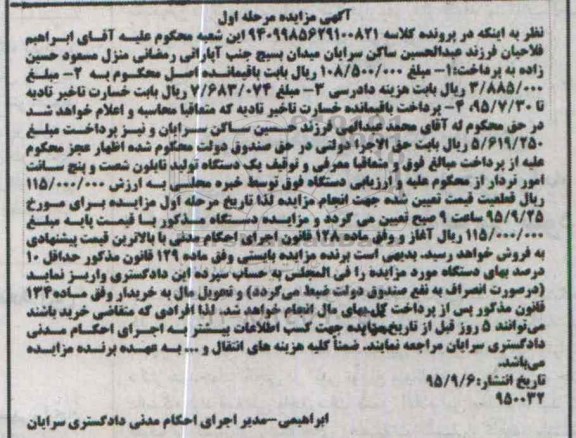 آگهی مزایده مرحله اول
نظر به اینکه در پرونده کلاسه ۹۴۰۹۹۸۵۶۲۹۱۰۰۸۲۱ این شعبه محکوم علیه آقای ابراهیم
فلاحیان فرزند عبدالحسین ساکن سرایان میدان بسیج جنب آپاراتی رمضانی منزل مسعود حسین
زاده به پرداخت:۱- مبلغ ۱۰۸/۵۰۰/۰۰۰ ریال بابت باقیمانده اصل محکوم به ۲- مبلغ
۳/۸۸۵/۰۰۰ ریال بابت هزینه دادرسی ۳- مبلغ ۷/۶۸۳/۰۷۴ ریال بابت خسارت تاخیر تادیه
تا ۹۵/۷/۳۰، ۴- پرداخت باقیمانده خسارت تاخیر تادیه که متعاقبا محاسبه و اعلام خواهد شد
در حق محکوم له آقای محمد عبدالهی فرزند حسین ساکن سرایان و نیز پرداخت مبلغ
۵/۶۱۹/۲۵۰ ریال بابت حق الاجرا دولتی در حق صندوق دولت محکوم شده اظهار عجز محکوم
علیه از پرداخت مبالغ فوق و متعاقبا معرفی و توقیف یک دستگاه تولید نایلون شصت و پنج سانت
امور نردار از محکوم علیه و ارزیابی دستگاه فوق توسط خبره محلی به ارزش ۱۱۵/۰۰۰/۰۰۰
ریال قطعیت قیمت تعیین شده جهت انجام مزایده لذا تاریخ مرحله اول مزایده برای مورخ
۹۵/۹/۲۵ ساعت ۹ صبح تعیین می گردد و مزایده دستگاه مذکور با قیمت پایه مبلغ
۱۱۵/۰۰۰/۰۰۰ ریال آغاز و وفق ماده ۱۲۸ قانون اجرای احکام مدنی با بالاترین قیمت پیشنهادی
به فروش خواهد رسید. بدیهی است برنده مزایده بایستی وفق ماده ۱۲۹ قانون مذکور حداقل ۱۰
درصد بهای دستگاه مورد مزایده را فی المجلس به حساب سپرده این دادگستری واریز نماید
(درصورت انصراف به نفع صندوق دولت ضبط می‌گردد) و تحویل مال به خریدار وفق ماده ۱۳۴
قانون مذکور پس از پرداخت کل بهای مال انجام خواهد شد، لذا افرادی که متقاضی خرید باشند
می‌توانند ۵ روز قبل از تاریخ مزایده جهت کسب اطلاعات بیشتر به اجرای احکام مدنی
دادگستری سرایان مراجعه نمایند. ضمناً کلیه هزینه های انتقال و ... به عهده برنده مزایده
می‌باشد.
تاریخ انتشار: ۹۵/۹/۶
۹۵۰۰۳۲
ابراهیمی-مدیر اجرای احکام مدنی دادگستری سرایان